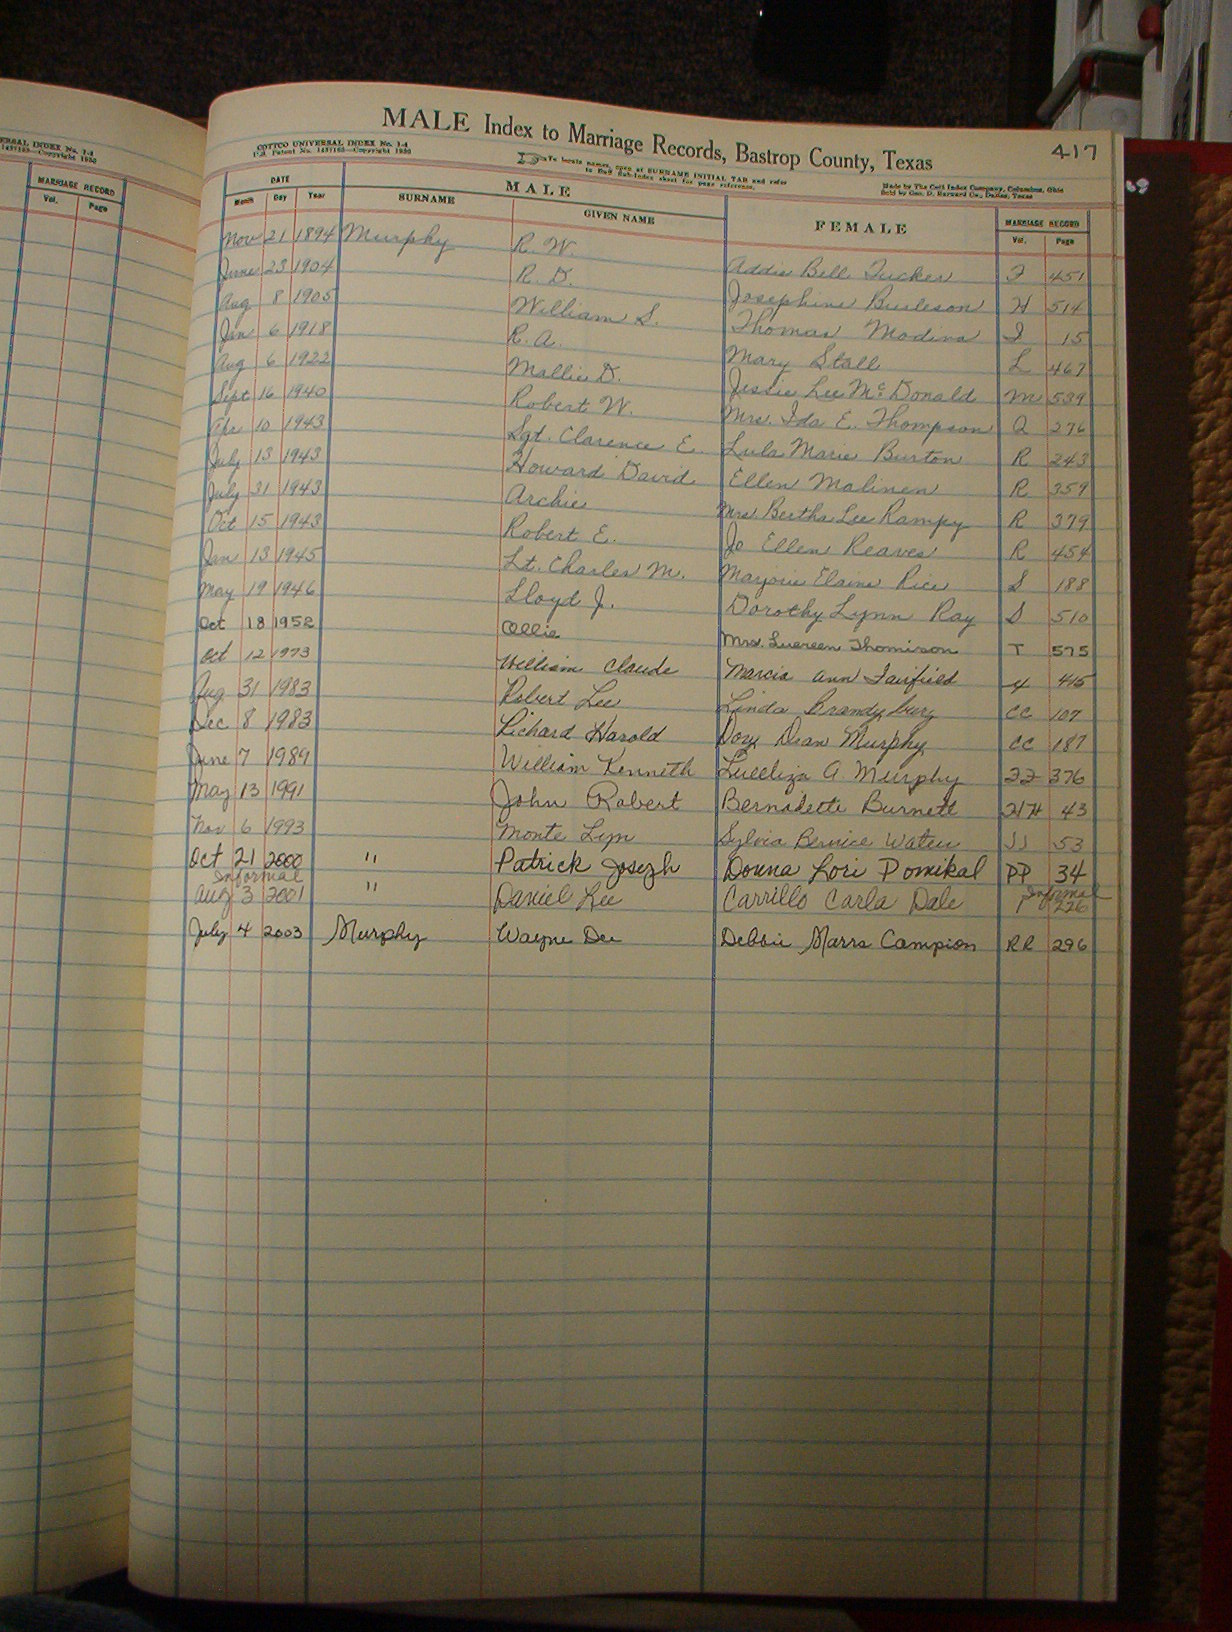 ERSAL INDEX No. 1-4
MARRIAGE RECORD
Vol. Page
MALE Index to Marriage Records, Bastrop County, Texas
417
COTTCO UNIVERSAL INDEX No. 1-4
To locate names, open at SURNAME INITIAL TAB and refer
Made by The Cott Index Company, Columbus, Ohio
DATE MALE FEMALE MARRIAGE RECORD
Month Day Year SURNAME GIVEN NAME Vol. Page
Nov 21 1894 Murphy R. W. Addie Bell Tucker F 451
June 23 1904 R. D. Josephine Burleson H 514
Aug 8 1905 William S. Thomas Modina I 15
Jan 6 1918 R. A. Mary Stall L 467
Aug 6 1922 Mallie D. Jessie Lee McDonald M 539
Sept 16 1940 Robert W. Mrs. Ida E. Thompson Q 276
Apr 10 1943 Sgt. Clarence E. Lula Marie Burton R 243
July 13 1943 Howard David Ellen Malinen R 359
July 31 1943 Archie Mrs. Bertha Lee Rampy R 379
Oct 15 1943 Robert E. Jo Ellen Reaves R 454
Jan 13 1945 Lt. Charles M. Marjorie Elaine Rice S 188
May 19 1946 Lloyd J. Dorothy Lynn Ray S 510
Oct 18 1952 Ollie Mrs. Luereen Thomison T 575
Oct 12 1973 William Claude Marcia Ann Fairfield 4 415
Aug 31 1983 Robert Lee Linda Brandyburg CC 107
Dec 8 1983 Richard Harold Doxy Dean Murphy CC 187
June 7 1989 William Kenneth Lueeliza A Murphy 22 376
May 13 1991 John Robert Bernadette Burnett 43
Nov 6 1993 Monte Lyn Sylvia Bernice Waters JJ 53
Oct 21 2000 " Patrick Joseph Donna Lori Pomikal PP 34
Informal Informal
Aug 3 2001 " Daniel Lee Carrillo Carla Dale 1 226
July 4 2003 Murphy Wayne Dee Debbie Marrs Campion RR 296